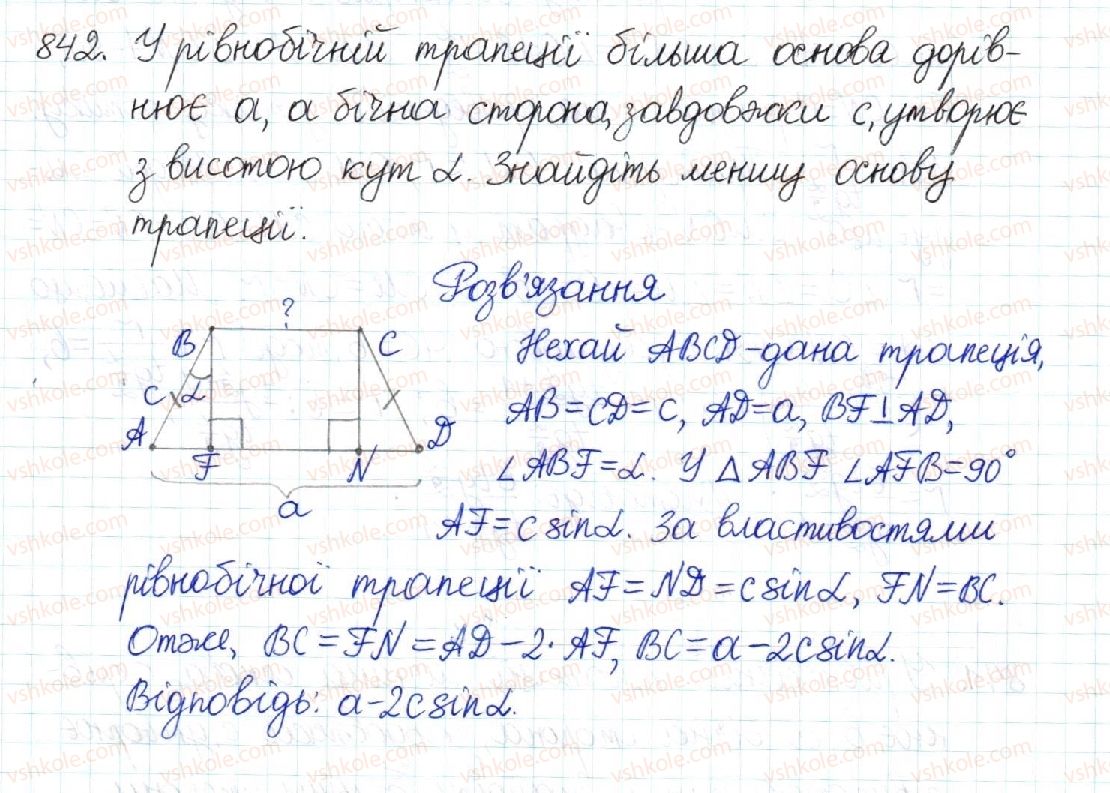 842. У рівнобічній трапеції більша основа дорів-
нює a, а бічна сторона, завдовжки c, утворює
з висотою кут α. Знайдіть меншу основу
трапеції.
Розв'язання
?
B C
Нехай ABCD – дана трапеція,
c α
AB = CD = c, AD = a, BF ⊥ AD,
A F N D
∠ABF = α. У △ABF ∠AFB = 90°
a
AF = c sinα. За властивостями
рівнобічної трапеції AF = ND = c sinα, FN = BC.
Отже, BC = FN = AD – 2 · AF, BC = a – 2c sinα.
Відповідь: a – 2c sinα.